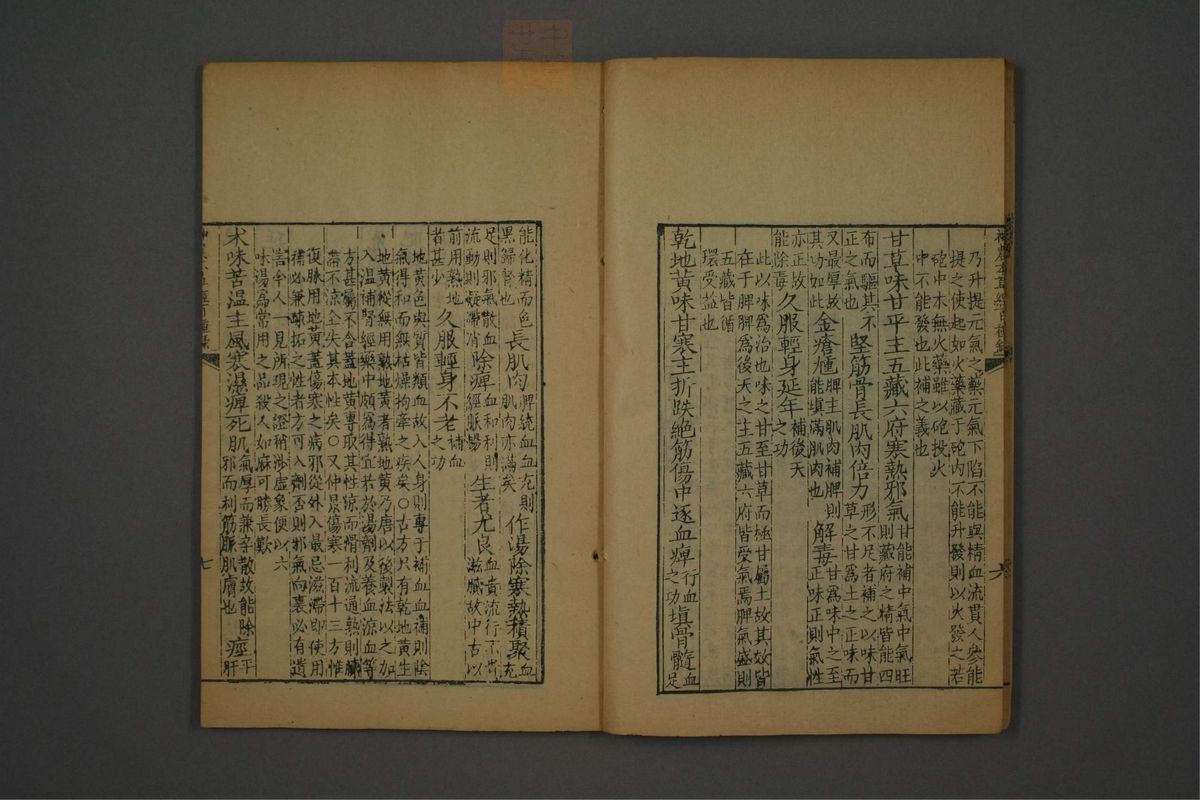 神農本草經百種錄
六
乃升提元氣之藥元氣下陷不能與精血流貫人參能
提之使起如火藥藏于砲內不能升發則以火發之若
砲中本無火藥雖以砲投火
中不能發也此補之義也
甘草味甘平主五藏六府寒熱邪氣甘能補中氣中氣旺則藏府之精皆能四
布而驅其不正之氣也堅筋骨長肌肉倍力形不足者補之以味甘草之甘爲土之正味而
又最厚故其功如此金瘡尰脾主肌肉補脾則能塡滿肌肉也解毒甘爲味中之至正味正則氣性
亦正故能除毒久服輕身延年補後天之功
此以味爲治也味之甘至甘草而極甘屬土故其效皆
在于脾脾爲後天之主五藏六府皆受氣焉脾氣盛則
五藏皆循
環受益也
乾地黃味甘寒主折跌絕筋傷中逐血痹行血之功塡骨髓血足
能化精而色黑歸腎也長肌肉脾統血血充則肌肉亦滿矣作湯除寒熱積聚血充
足則邪氣散血流動則凝滯消除痹血和利則經脈暢生者尤良血貴流行不貴滋膩故中古以
前用熟地者甚少久服輕身不老補血之功
地黃色與質皆類血故入人身則專于補血血補則陰
氣得和而無枯燥拘牽之疾矣○古方只有乾地黃生
地黃從無用熟地黃者熟地黃乃唐以後製法以之加
入溫補腎經藥中頗爲得宜若於湯劑及養血涼血等
方甚屬不合蓋地黃專取其性涼而滑利流通熟則膩
滯不涼全失其本性矣○又仲景傷寒一百十三方惟
復脈用地黃蓋傷寒之病邪從外入最忌滋滯即使用
補必兼疎拓之性者方可入劑否則邪氣向裏必有遺
害今人一見所現之證稍涉虛象便以六
味湯爲常用之品殺人如麻可勝長歎
朮味苦溫主風寒濕痹死肌氣厚而兼辛散故能除邪而利筋脈肌膚也痙平肝
七